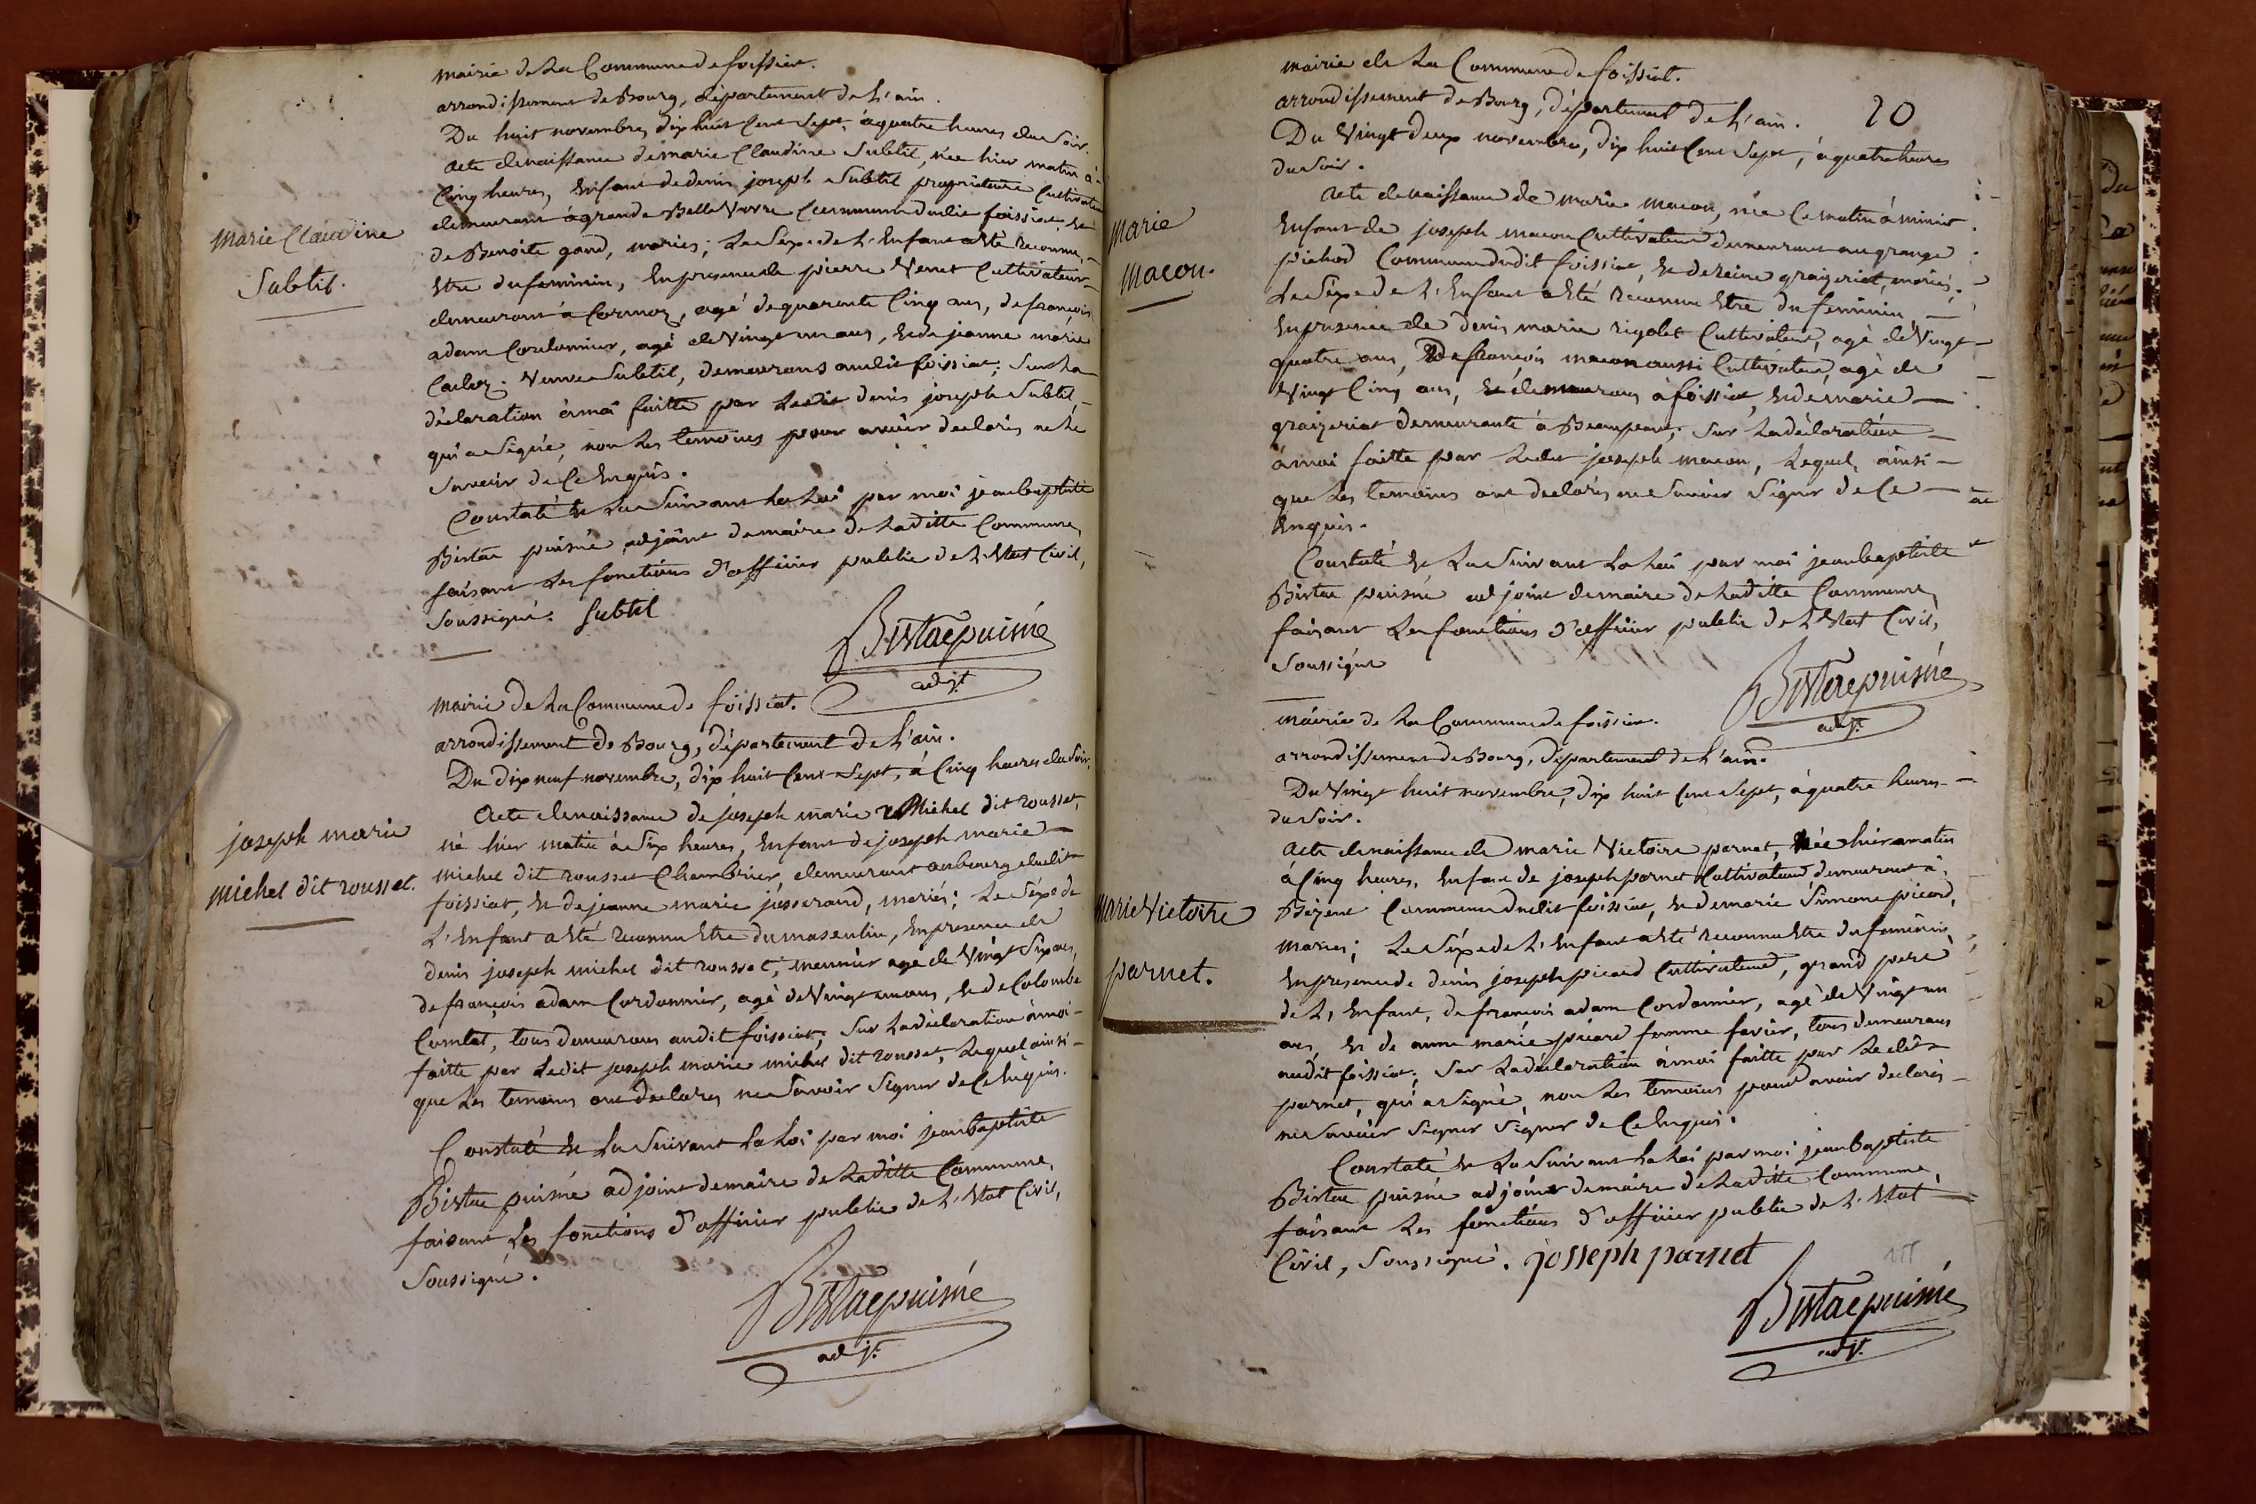 mairie de La Commune de foissiat.
arrondissement de Bourg, département de L'ain.
Du huit novembre, dix huit Cent Sept, à quatre heures du Soir.
Acte de naissance de marie Claudine Subtil, née hier matin à
Cinq heures, Enfant de denis joseph Subtil propriétaire Cultivateur
demeurant à grande Belle Vavre Commune dudit foissiat, Et
de Benoite gand, mariés; Le Séxe de L'Enfant a été reconnu
Etre du feminin, En presence de pierre Venet Cultivateur
demeurant à Cormoz, agé de quarante Cinq ans, de françois
adam Cordonnier, agé de Vingt un ans, Et de jeanne marie
Veuve Subtil, demeurans audit foissiat; Sur La
déclaration à moi faitte par Ledit denis joseph Subtil
qui a Signé, non Les temoins pour avoir declarés ne Le
Savoir de Ce Enquis.
Constaté Et Lu Suivant La Loi par moi jean baptiste
Bistac puisné adjoint de maire de Laditte Commune,
faisant Les fonctions d'officier public de L'Etat Civil,
Soussigné. Subtil
Bistac puisné
adjt.
Marie Claudine
Subtil.
mairie de La Commune de foissiat.
arrondissement de Bourg, département de L'ain.
Du dix neuf novembre, dix huit Cent Sept, à Cinq heures du Soir,
Acte de naissance de joseph marie Michel dit rousset,
né hier matin à Six heures, Enfant de joseph marie
michel dit rousset Chambrier, demeurant au bourg dudit
foissiat, Et de jeanne marie josserand, mariés; Le Séxe de
L'Enfant a été reconnu Etre du masculin, En presence de
denis joseph michel dit rousset, meunier agé de Vingt Six ans,
de françois adam Cordonnier, agé de Vingt un ans, Et de Colombe
Comtet, tous demeurans audit foissiat; Sur La déclaration à moi
faitte par Ledit joseph marie michel dit rousset, Lequel ainsi
que Les temoins ont declarés ne Savoir Signer de Ce Enquis.
Constaté Et Lu Suivant La Loi par moi jean baptiste
Bistac puisné adjoint de maire de Laditte Commune,
faisant Les fonctions d'officier public de L'Etat Civil,
Soussigné.
Bistac puisné
adjt.
joseph marie
michel dit rousset.
20
mairie de La Commune de foissiat.
arrondissement de Bourg, département de L'ain.
Du Vingt deux novembre, dix huit Cent Sept, à quatre heures
du Soir.
Acte de naissance de marie macon, née Ce matin à minuit
Enfant de joseph macon Cultivateur demeurant au grange
pichod Commune dudit foissiat, Et de reine graizeriat, mariés;
Le Séxe de L'Enfant a été reconnu Etre du feminin,
En presence de denis marie rigolet Cultivateur, agé de Vingt
quatre ans, de françois macon aussi Cultivateur, agé de
Vingt Cinq ans, demeurans à foissiat, Et de marie
graizeriat demeurante à Beaupont; Sur La déclaration
à moi faitte par Ledit joseph macon, Lequel, ainsi
que Les temoins ont declarés ne Savoir Signer de Ce
Enquis.
Constaté Et Lu Suivant La Loi par moi jean baptiste
Bistac puisné adjoint de maire de Laditte Commune,
faisant Les fonctions d'officier public de L'Etat Civil,
Soussigné
Bistac puisné
adjt.
Marie
Macon.
mairie de La Commune de foissiat.
arrondissement de Bourg, département de L'ain.
Du Vingt huit novembre, dix huit Cent Sept, à quatre heures
du Soir.
Acte de naissance de marie Victoire parnet, née hier matin
à Cinq heures, Enfant de joseph parnet Cultivateur demeurant à
Bézent Commune dudit foissiat, Et de marie Simone picard,
mariés; Le Séxe de L'Enfant a été reconnu Etre du feminin,
En presence de denis joseph picard Cultivateur, grand pere
de L'Enfant, de françois adam Cordonnier, agé de Vingt un
ans, Et de anne marie picard femme favier, tous demeurans
audit foissiat; Sur La déclaration à moi faitte par Le dit
parnet, qui a Signé, non Les temoins pour avoir declarés
ne Savoir Signer Signer de Ce Enquis.
Constaté Et Lu Suivant La Loi par moi jean baptiste
Bistac puisné adjoint de maire de Laditte Commune,
faisant Les fonctions d'officier public de L'Etat
Civil, Soussigné. josseph parnet
Bistac puisné
adjt.
Marie Victoire
parnet.